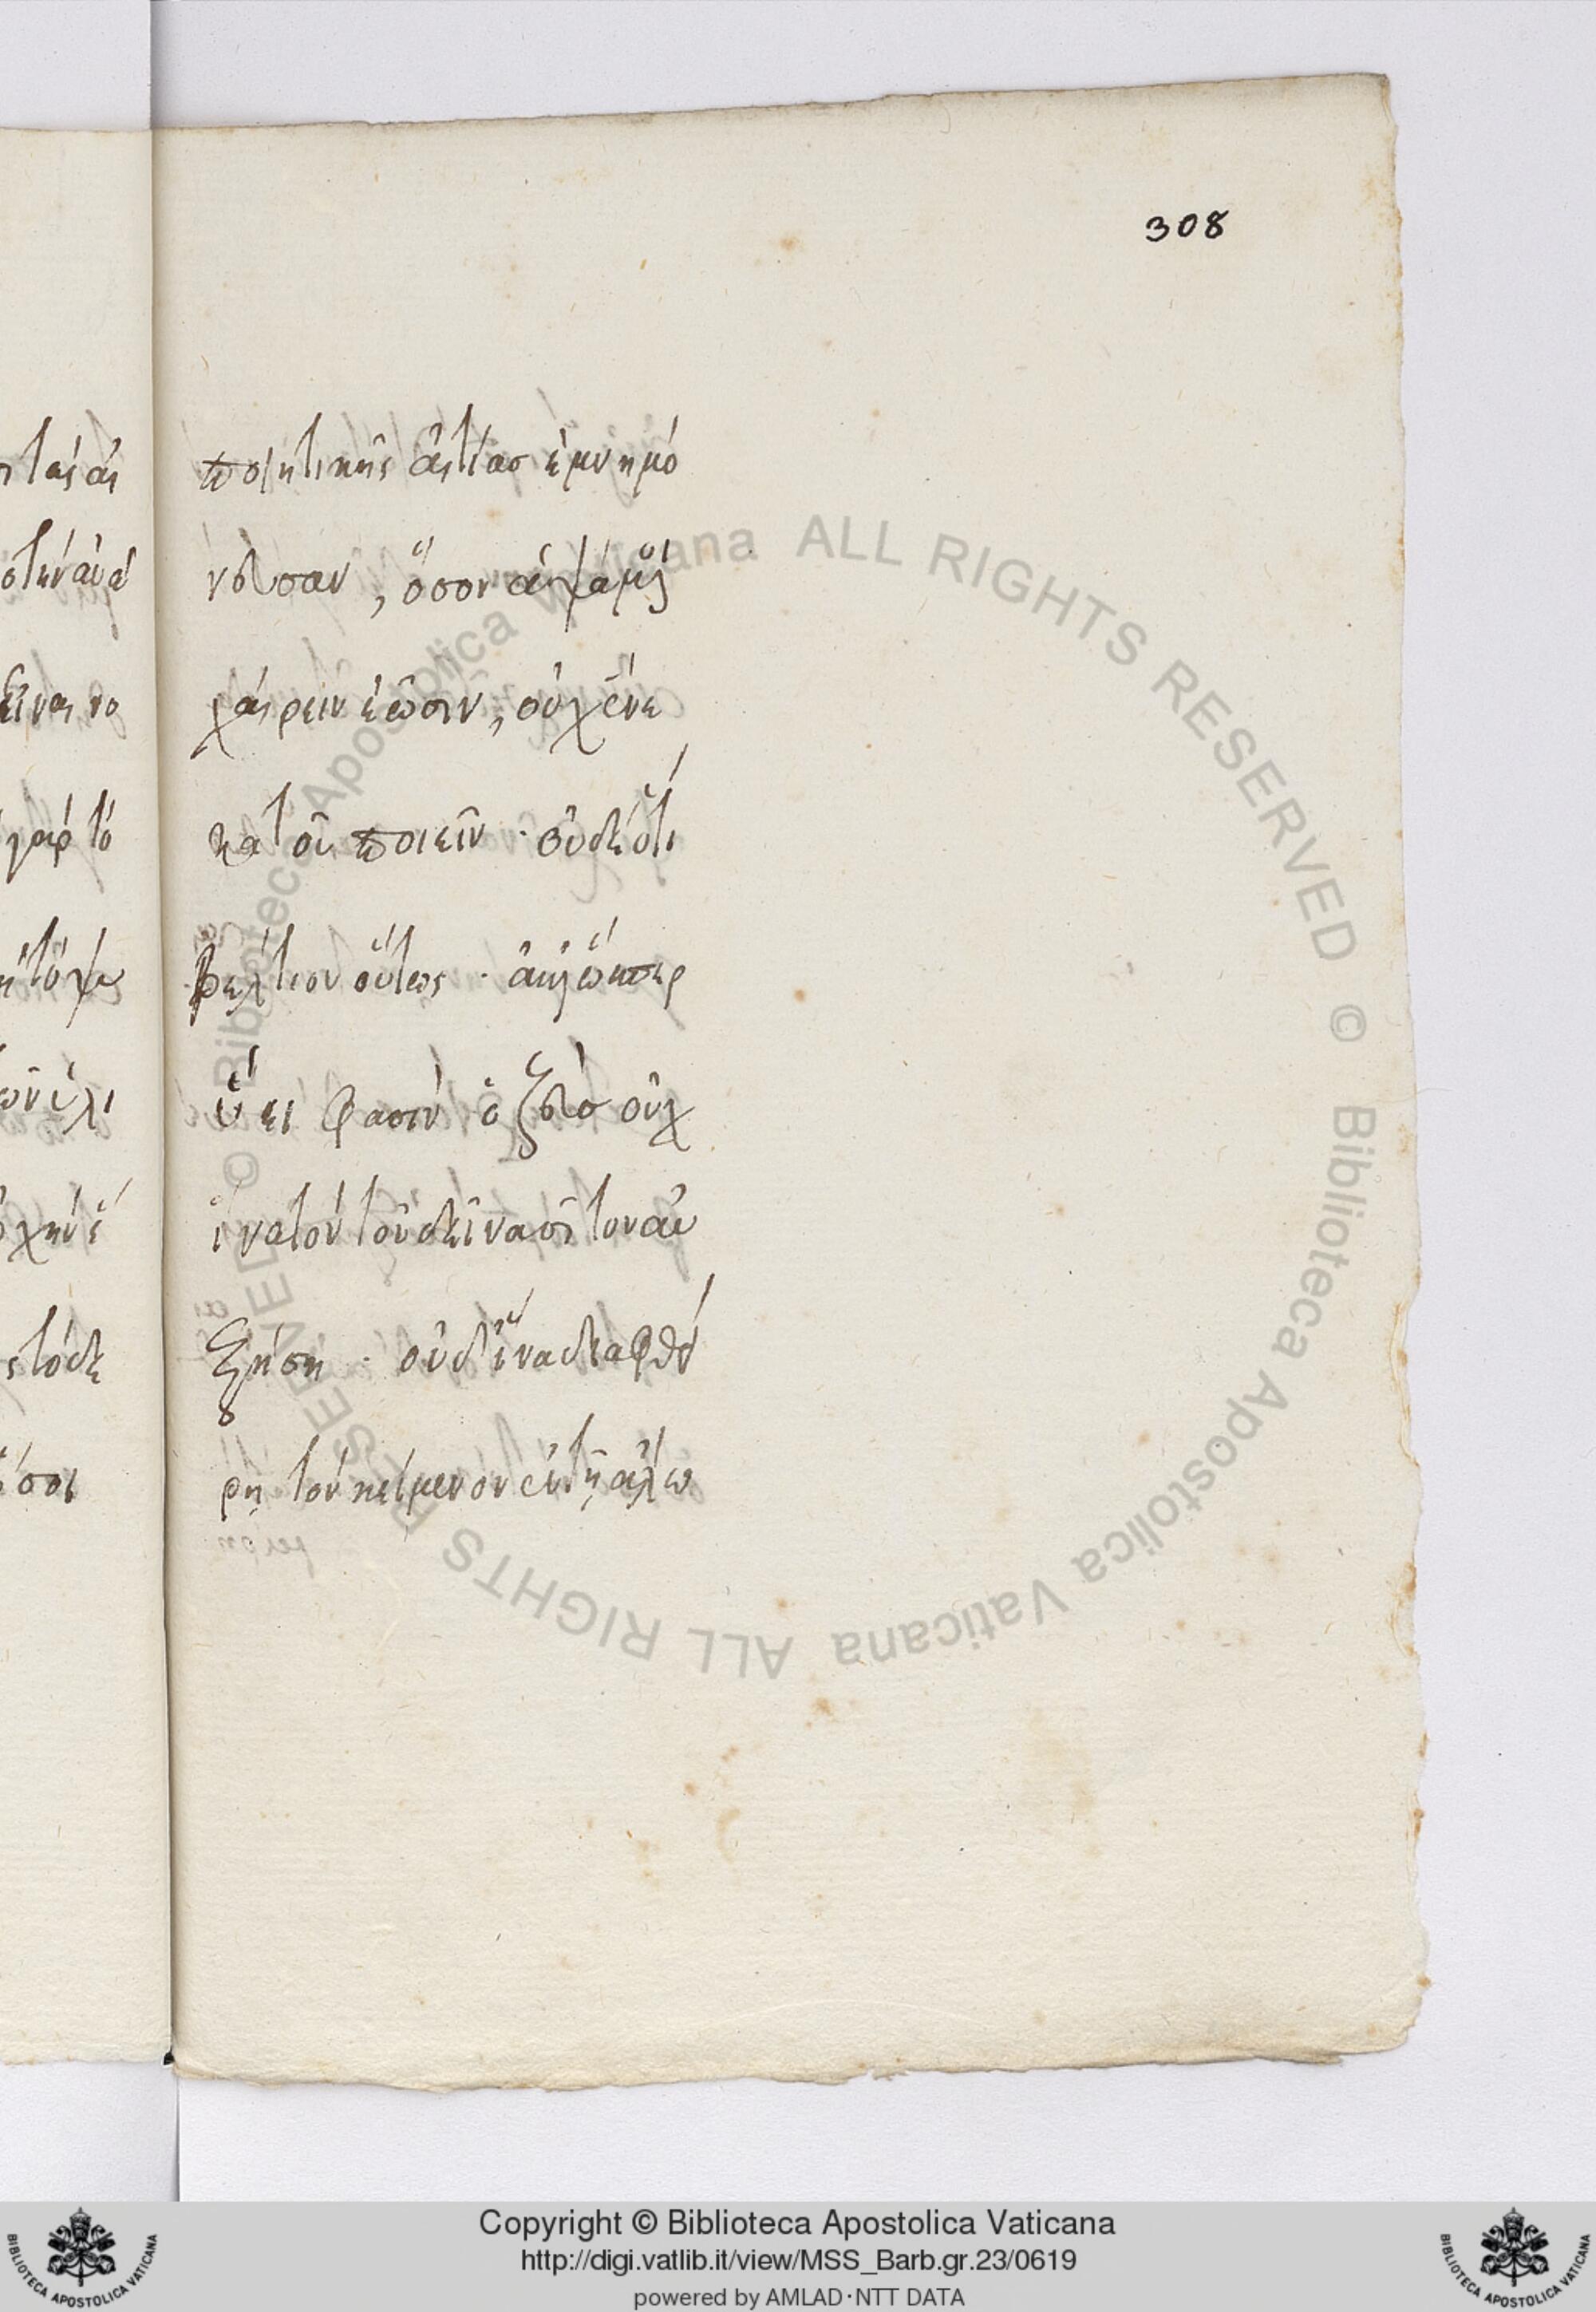 308
ποιητικῆς αἰτίας ἐμνημό
νευσαν, ὅσον
χαίρειν ἐῶσιν, οὐχ ἕνε
κα τοῦ ποιεῖν · οὐδ' ὅτι
βέλτιον οὕτως · ὥσπερ
ὕει φασιν ὁ ζεὺσ οὐχ
ἵνα τὸν τοῦ δεῖνα σῖτον αὐ
ξήση · οὐδ' ἵνα διαφθεί
ρη τὸν κείμενον ἐν τῇ ἅλω
© Biblioteca Apostolica Vaticana ALL RIGHTS RESERVED © Biblioteca Apostolica Vaticana ALL RIGHTS RESERVED
Copyright © Biblioteca Apostolica Vaticana
http://digi.vatlib.it/view/MSS_Barb.gr.23/0619
powered by AMLAD·NTT DATA
BIBLIOTECA APOSTOLICA VATICANA
BIBLIOTECA APOSTOLICA VATICANA